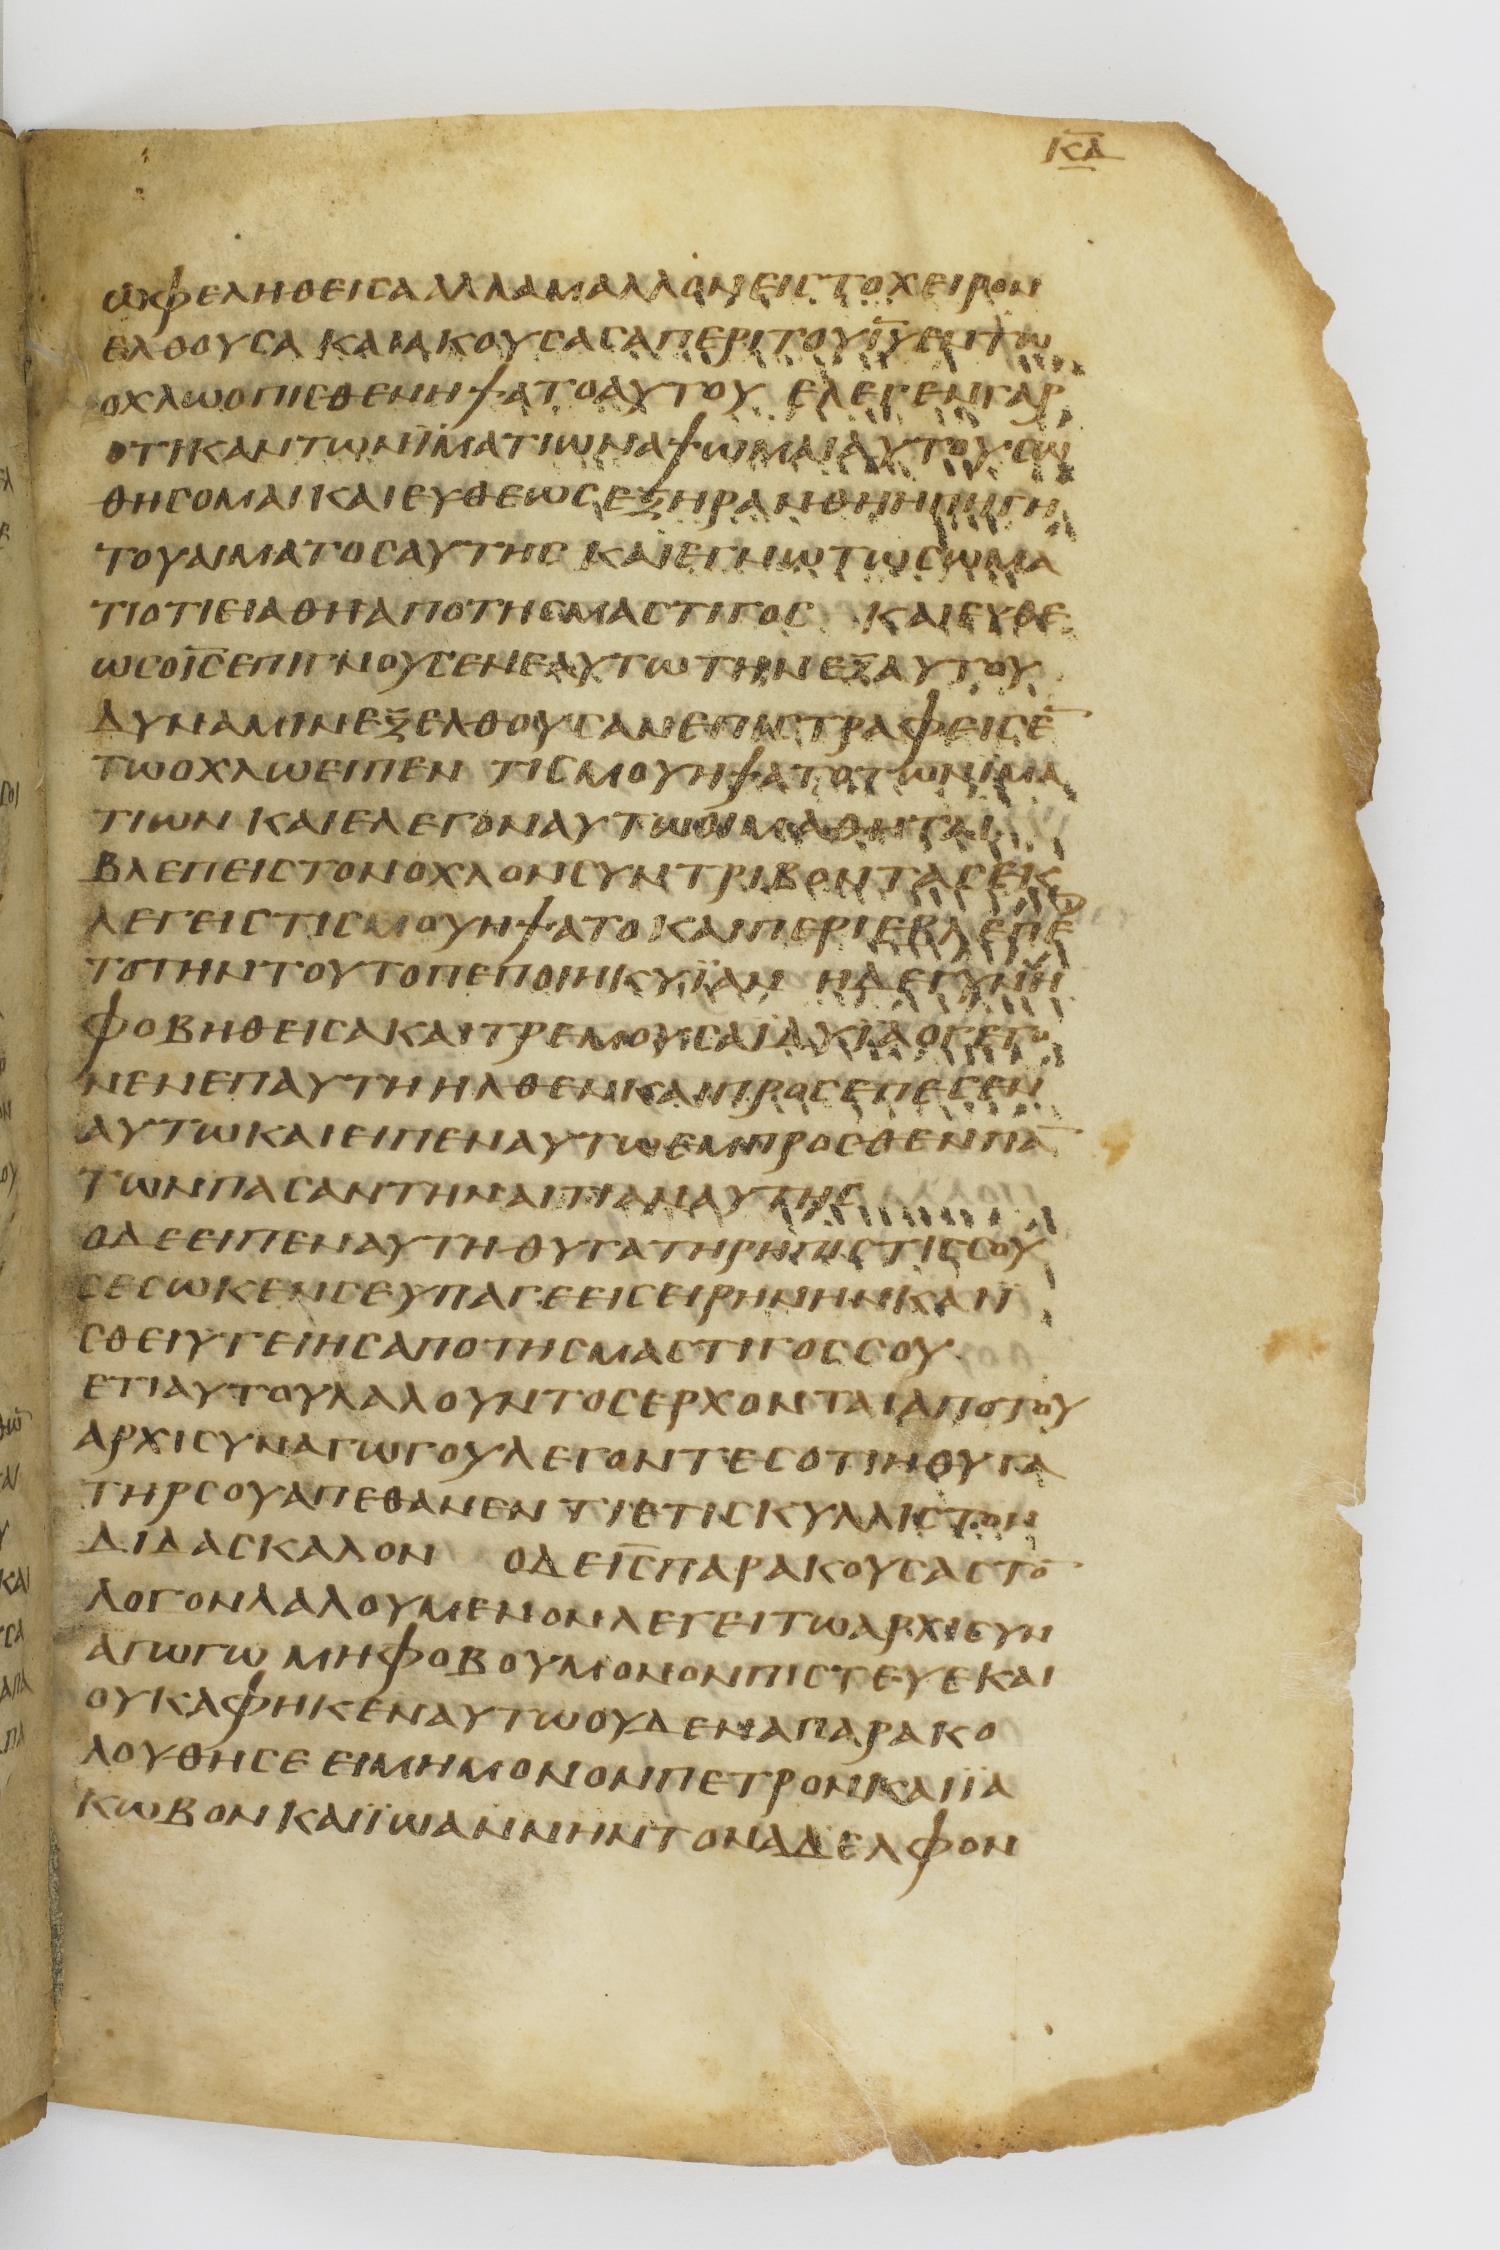 ΚΑ
ΩΦΕΛΗΘΕΙϹΑΛΛΑΜΑΛΛΟΝΕΙϹΤΟΧΕΙΡΟΝ
ΕΛΘΟΥϹΑ ΚΑΙΑΚΟΥϹΑϹΑΠΕΡΙΤΟΥΙ̅Υ̅ΕΝΤΩ
ΟΧΛΩΟΠΙϹΘΕΝΗΨΑΤΟΑΥΤΟΥ ΕΛΕΓΕΝΓΑΡ
ΟΤΙΚΑΝΤΩΝΪΜΑΤΙΩΝΑΨΩΜΑΙΑΥΤΟΥϹΩ
ΘΗϹΟΜΑΙΚΑΙΕΥΘΕΩϹΕΞΗΡΑΝΘΗΗΠΗΓΗ
ΤΟΥΑΙΜΑΤΟϹΑΥΤΗϹ ΚΑΙΕΓΝΩΤΩϹΩΜΑ
ΤΙΟΤΙΕΙΑΘΗΑΠΟΤΗϹΜΑϹΤΙΓΟϹ ΚΑΙΕΥΘΕ
ΩϹΟΙ̅Ϲ̅ΕΠΙΓΝΟΥϹΕΝΕΑΥΤΩΤΗΝΕΞΑΥΤΟΥ
ΔΥΝΑΜΙΝΕΞΕΛΘΟΥϹΑΝΕΠΙϹΤΡΑΦΕΙϹΕ̅
ΤΩΟΧΛΩΕΙΠΕΝ ΤΙϹΜΟΥΗΨΑΤΟΤΩΝΪΜΑ
ΤΙΩΝ ΚΑΙΕΛΕΓΟΝΑΥΤΩΟΙΜΑΘΗΤΑΙ
ΒΛΕΠΕΙϹΤΟΝΟΧΛΟΝϹΥΝΤΡΙΒΟΝΤΑϹΕΚ
ΛΕΓΕΙϹΤΙϹΜΟΥΗΨΑΤΟΚΑΙΠΕΡΙΕΒΛΕΠΕ
ΤΟΤΗΝΤΟΥΤΟΠΕΠΟΙΗΚΥΪΑΝ ΗΔΕΓΥΝΗ
ΦΟΒΗΘΕΙϹΑΚΑΙΤΡΕΜΟΥϹΑΪΔΥΙΑΟΓΕΓΟ
ΝΕΝΕΠΑΥΤΗΗΛΘΕΝΚΑΙΠΡΟϹΕΠΕϹΕΝ
ΑΥΤΩΚΑΙΕΙΠΕΝΑΥΤΩΕΜΠΡΟϹΘΕΝΠΑ̅
ΤΩΝΠΑϹΑΝΤΗΝΑΙΤΙΑΝΑΥΤΗϹ
ΟΔΕΕΙΠΕΝΑΥΤΗΘΥΓΑΤΗΡΗΠΙϹΤΙϹϹΟΥ
ϹΕϹΩΚΕΝϹΕΥΠΑΓΕΕΙϹΕΙΡΗΝΗΝΚΑΙΪ
ϹΘΕΙΥΓΕΙΗϹΑΠΟΤΗϹΜΑϹΤΙΓΟϹϹΟΥ
ΕΤΙΑΥΤΟΥΛΑΛΟΥΝΤΟϹΕΡΧΟΝΤΑΙΑΠΟΤΟΥ
ΑΡΧΙϹΥΝΑΓΩΓΟΥΛΕΓΟΝΤΕϹΟΤΙΗΘΥΓΑ
ΤΗΡϹΟΥΑΠΕΘΑΝΕΝ ΤΙΕΤΙϹΚΥΛΛΙϹΤΟΝ
ΔΙΔΑϹΚΑΛΟΝ ΟΔΕΙ̅Ϲ̅ΠΑΡΑΚΟΥϹΑϹΤΟ̅
ΛΟΓΟΝΛΑΛΟΥΜΕΝΟΝΛΕΓΕΙΤΩΑΡΧΙϹΥΝ
ΑΓΩΓΩ ΜΗΦΟΒΟΥΜΟΝΟΝΠΙϹΤΕΥΕΚΑΙ
ΟΥΚΑΦΗΚΕΝΑΥΤΩΟΥΔΕΝΑΠΑΡΑΚΟ
ΛΟΥΘΗϹΕ ΕΙΜΗΜΟΝΟΝΠΕΤΡΟΝΚΑΙΪΑ
ΚΩΒΟΝΚΑΙΪΩΑΝΝΗΝΤΟΝΑΔΕΛΦΟΝ